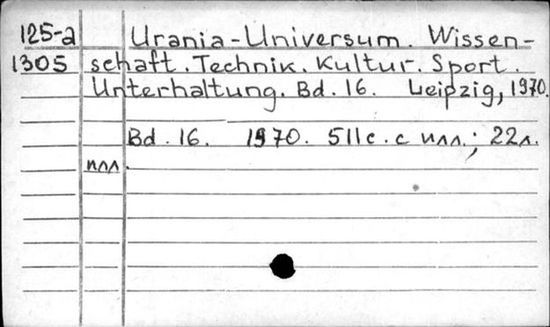 125-а Urania-Universum. Wissen-
1305 schaft. Technik. Kultur. Sport.
Unterhaltung. Bd. 16. Leipzig, 1970.
Bd. 16. 1970. 511с. с илл.; 22л.
илл.